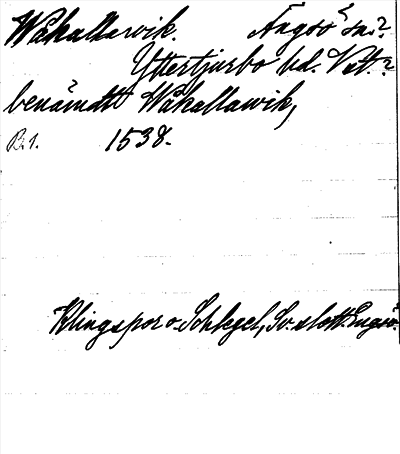 Wåkallawik. Ängsö sn?
Yttertjurbo hd. Vstm?
benämdt Wåkallawik,
B.1. 1538.
Klingspor o. Schlegel, Sv. slott. Engsö.